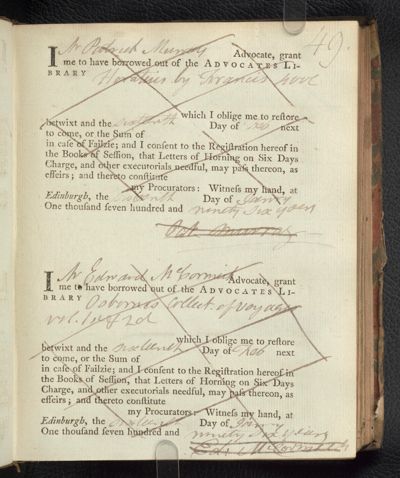 49.
I Mr Patrick Murray Advocate, grant
me to have borrowed out of the ADVOCATES LI-
BRARY Horatius by Francis
which I oblige me to reſtore
betwixt and the sixteenth Day of Feb next
to come, or the Sum of
in caſe of Failzie; and I conſent to the Regiſtration hereof in
the Books of Seſſion, that Letters of Horning on Six Days
Charge, and other executorials needful, may paſs thereon, as
effeirs; and thereto conſtitute
my Procurators: Witneſs my hand, at
Edinburgh, the sixteenth Day of Janry
One thouſand ſeven hundred and ninety six years
Pat Murray
I Mr Edward McCormick Advocate, grant
me to have borrowed out of the ADVOCATES LI-
BRARY Osbornes Collect. of voyages
vol. 1st & 2d
which I oblige me to reſtore
betwixt and the sixteenth Day of Feb next
to come, or the Sum of
in caſe of Failzie; and I conſent to the Regiſtration hereof in
the Books of Seſſion, that Letters of Horning on Six Days
Charge, and other executorials needful, may paſs thereon, as
effeirs; and thereto conſtitute
my Procurators: Witneſs my hand, at
Edinburgh, the sixteenth Day of Janry
One thouſand ſeven hundred and ninety six years
Ed. McCormick